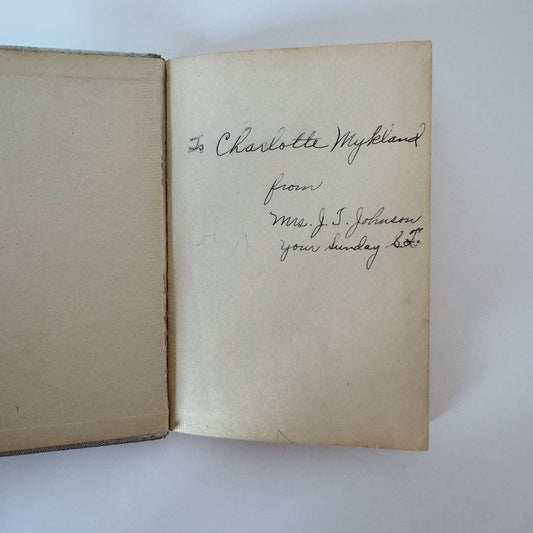 To Charlotte Mykland
from
Mrs. J. T. Johnson
your Sunday S.T.